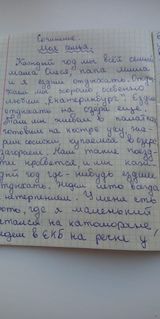 Сочинение.
Моя семья.
Каждый год мы всей семьёй
мама Олеся, папа Миша
и я ездим отдыхать. Отды
хаем мы хорошо, особенно
любим "Екатеринбург". Ездим
отдыхать на озера еще.
Там мы живём в палатке
готовим на костре уху, жа-
рим сосиски купаемся в озере
загораем. Нам такие поезд-
ки нравятся и мы каж-
дый год где-нибудь ездим
отдыхать. Ждём лето всегда
с нетерпением. У меня есть
фото, где я маленький
катался на катамаране,
ездим в ЕКБ на речку у